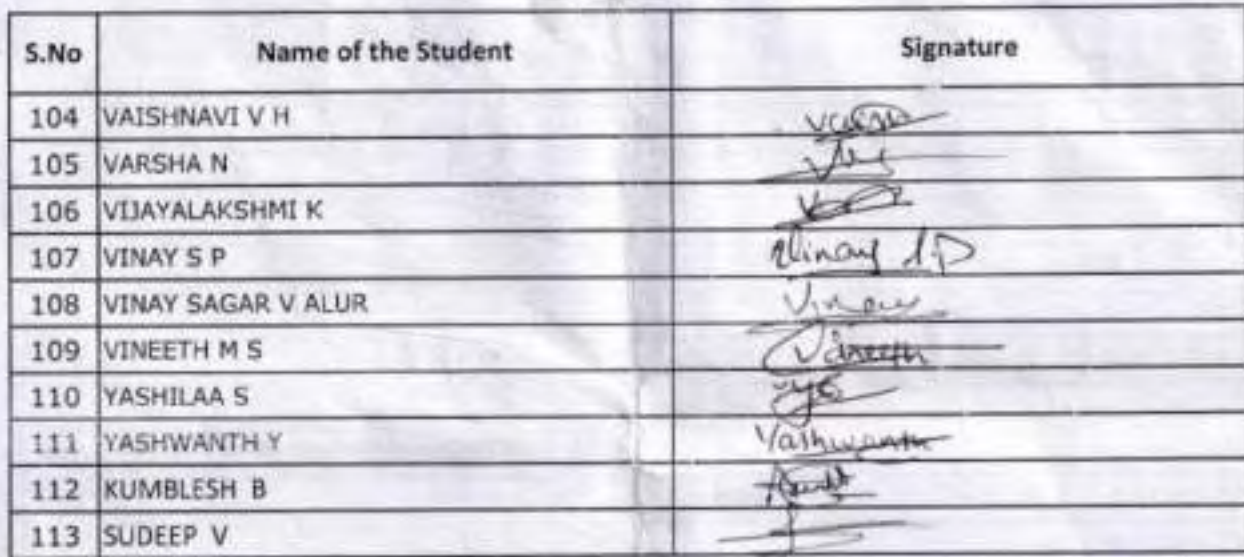 S.No Name of the Student Signature
104 VAISHNAVI V H
105 VARSHA N
106 VIJAYALAKSHMI K
107 VINAY S P Vinay S P
108 VINAY SAGAR V ALUR Vinay
109 VINEETH M S Vineeth
110 YASHILAA S
111 YASHWANTH Y Yashwanth
112 KUMBLESH B
113 SUDEEP V